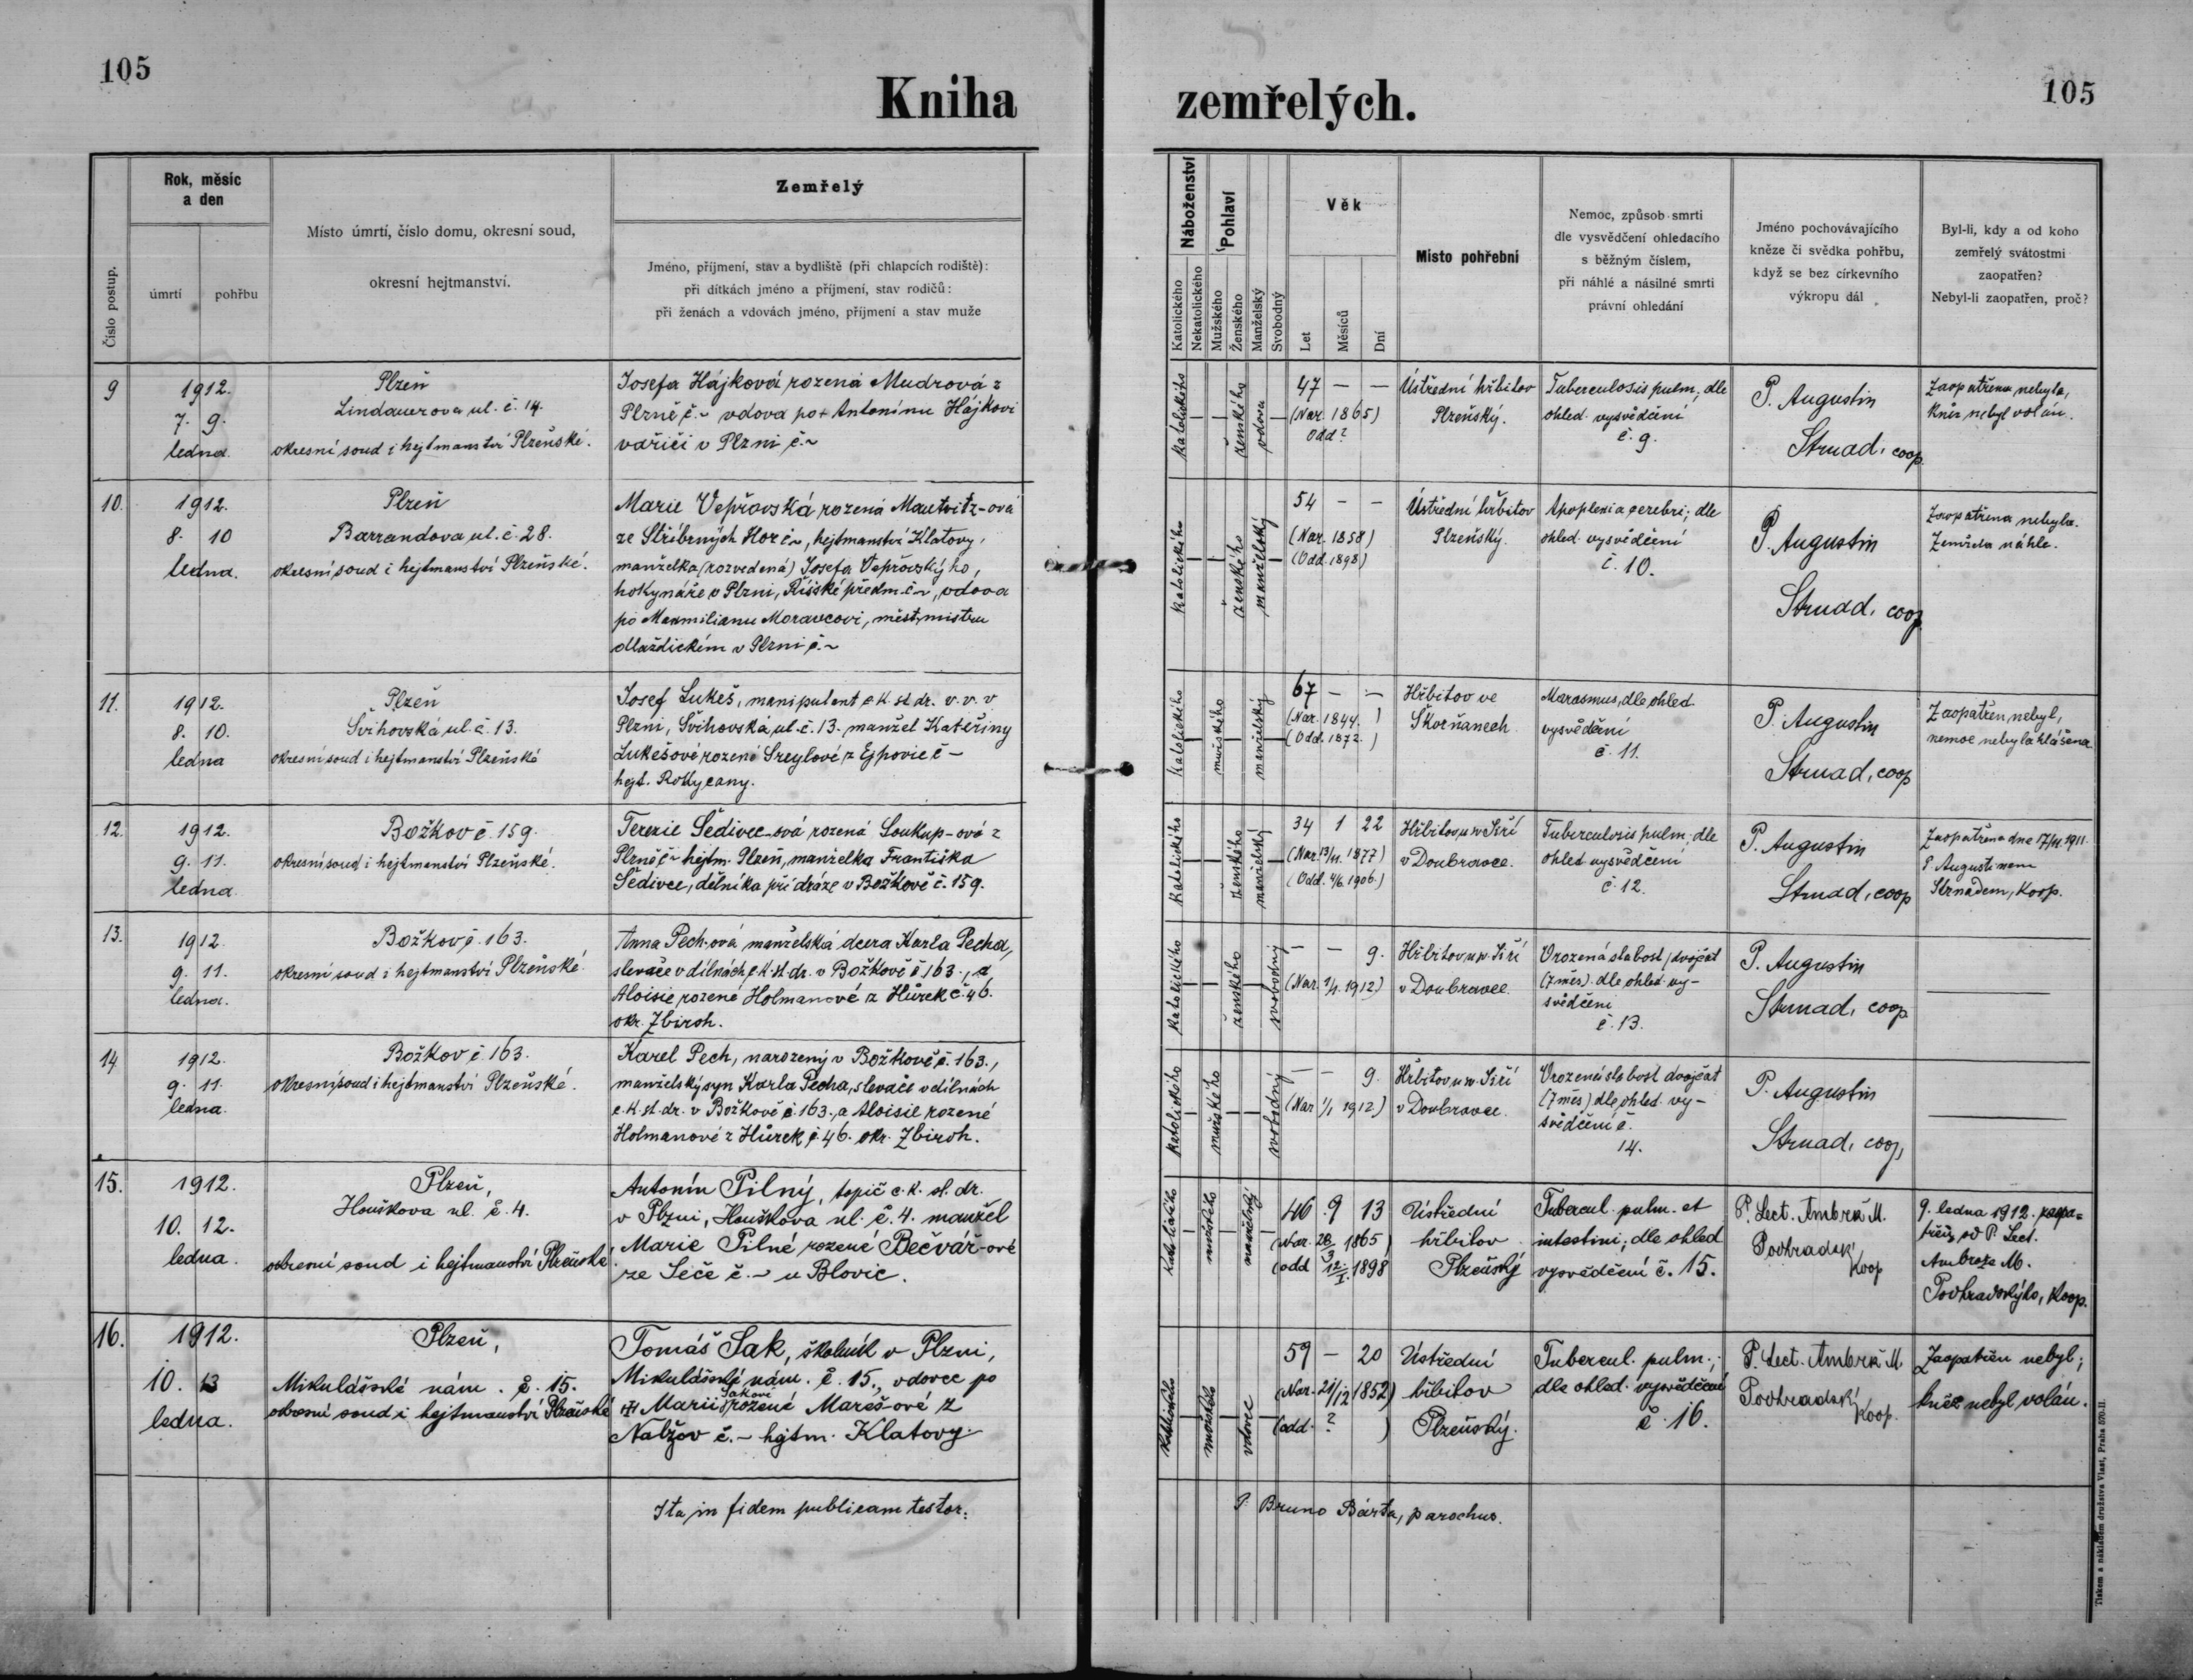 105
Kniha
zemřelých.
105
Číslo postup.
Rok, měsíc
a den
úmrtí
pohřbu
Místo úmrtí, číslo domu, okresní soud,
okresní hejtmanství.
Zemřelý
Jméno, příjmení, stav a bydliště (při chlapcích rodiště):
při dítkách jméno a příjmení, stav rodičů:
při ženách a vdovách jméno, příjmení a stav muže
Náboženství
Katolického
Nekatolického
Pohlaví
Mužského
Ženského
Manželský
Svobodný
Věk
Let
Měsíců
Dní
Místo pohřební
Nemoc, způsob smrti
dle vysvědčení ohledacího
s běžným číslem,
při náhlé a násilné smrti
právní ohledání
Jméno pochovávajícího
kněze či svědka pohřbu,
když se bez církevního
výkropu dál
Byl-li, kdy a od koho
zemřelý svátostmi
zaopatřen?
Nebyl-li zaopatřen, proč?
9
1912.
7. 9.
ledna.
Plzeň
Lindauerova ul. č. 14.
okresní soud i hejtmanství Plzeňské.
Josefa Hájková rozená Mudrová z
Plzně č. ~ vdova po + Antonínu Hájkovi
vařiči v Plzni č. ~
katolického
ženského
vdova
47 — —
(Nar. 1865)
Odd?
Ústřední hřbitov
Plzeňský.
Tuberculosis pulm.; dle
ohled. vysvědčení
č. 9.
P. Augustin
Strnad, coop.
Zaopatřena nebyla,
kněz nebyl volán.
10.
1912.
8. 10
ledna.
Plzeň
Barrandova ul. č. 28.
okresní soud i hejtmanství Plzeňské.
Marie Vepřovská rozená Mautvitz-ová
ze Stříbrných Hor č. ~, hejtmanství Klatovy,
manželka (rozvedená) Josefa Vepřovskýho,
hokynáře v Plzni, Říšské předm. č. ~, vdova
po Maxmilianu Moravcovi, měst. mistru
dlaždickém v Plzni č. ~
katolického
ženského
manželský
54 - -
(Nar. 1858)
(Odd. 1898)
Ústřední hřbitov
Plzeňský.
Apoplexia cerebri; dle
ohled. vysvědčení
č. 10.
P. Augustin
Strnad, coop.
Zaopatřena nebyla.
Zemřela náhle.
11.
1912.
8. 10.
ledna
Plzeň
Švihovská ul. č. 13.
okresní soud i hejtmanství Plzeňské
Josef Lukeš, manipulant c. k. st. dr. v. v. v
Plzni, Švihovská ul. č. 13. manžel Kateřiny
Lukešové rozené Sreylové z Ejpovic č —
hejt. Rokycany.
katolického
mužského
manželský
67 — —
(Nar. 1844.)
(Odd. 1872.)
Hřbitov ve
Skvrňanech
Marasmus, dle ohled.
vysvědčení
č. 11.
P. Augustin
Strnad, coop
Zaopatřen nebyl,
nemoc nebyla hlášena
12.
1912.
9. 11.
ledna
Božkov č. 159.
okresní soud i hejtmanství Plzeňské.
Terezie Šedivec-ová rozená Soukup-ová z
Plzně č. ~ hejtm. Plzeň, manželka Františka
Šedivce, dělníka při dráze v Božkově č. 159.
katolického
ženského
manželský
34 1 22
(Nar. 13/11. 1877)
(Odd. 4/6. 1906.)
Hřbitov u sv. Jiří
v Doubravce.
Tuberculosis pulm.; dle
ohled. vysvědčení
č. 12.
P. Augustin
Strnad, coop
Zaopatřena dne 17/11. 1911.
P. Augustinem
Strnadem, koop.
13.
1912.
9. 11.
ledna.
Božkov č. 163.
okresní soud i hejtmanství Plzeňské.
Anna Pech-ová manželská dcera Karla Pecha,
slevače v dílnách c. k. st. dr. v Božkově č. 163., a
Aloisie rozené Holmanové z Hůrek č. 46.
okr. Zbiroh.
katolického
ženského
svobodný
— — 9.
(Nar. 1/1. 1912)
Hřbitov u sv. Jiří
v Doubravce.
Vrozená slabost, dvojčat
(7 měs.) dle ohled. vy-
svědčení
č. 13.
P. Augustin
Strnad, coop
—
14
1912.
9. 11.
ledna.
Božkov č. 163.
okresní soud i hejtmanství Plzeňské.
Karel Pech, narozený v Božkově č. 163.,
manželský syn Karla Pecha, slevače v dílnách
c. k. st. dr. v Božkově č. 163., a Aloisie rozené
Holmanové z Hůrek č. 46. okr. Zbiroh.
katolického
mužského
svobodný
— — 9.
(Nar. 1/1 1912)
Hřbitov u sv. Jiří
v Doubravce.
Vrozená slabost dvojčat
(7 měs) dle ohled. vy-
svědčení č.
14.
P. Augustin
Strnad, coop,
—
15.
1912.
10. 12.
ledna.
Plzeň,
Houškova ul. č. 4.
okresní soud i hejtmanství Plzeňské.
Antonín Pilný, topič c. k. st. dr.
v Plzni, Houškova ul. č. 4. manžel
Marie Pilné rozené Bečvář-ové
ze Seče č. ~ u Blovic.
katolického
mužského
manželský
46 9 13
(Nar. 28/3 1865)
(odd. 12./I. 1898
Ústřední
hřbitov
Plzeňský
Tubercul. pulm. et
intestini; dle ohled
vysvědčení č. 15.
P. Lect. Ambrož M.
Podhradský
koop
9. ledna 1912. zaopa=
třen od P. Lect.
Ambrože M.
Podhradskýho, koop.
16.
1912.
10. 13
ledna.
Plzeň,
Mikulášské nám. č. 15.
okresní soud i hejtmanství Plzeňské
Tomáš Sak, školník v Plzni,
Mikulášské nám. č. 15., vdovec po
Sakové
Marii rozené Mareš-ové z
Nalžov č. — hejtm. Klatovy.
katolického
mužského
vdovec
59 — 20
(Nar. 21/12 1852)
(odd. ? )
Ústřední
hřbitov
Plzeňský.
Tubercul. pulm.;
dle ohled. vysvědčení
č. 16.
P. Lect. Ambrož M.
Podhradský
koop.
Zaopatřen nebyl;
kněz nebyl volán.
Ita in fidem publicam testor:
P. Bruno Bárta, parochus.
Tiskem a nákladem družstva Vlast, Praha 570-II.